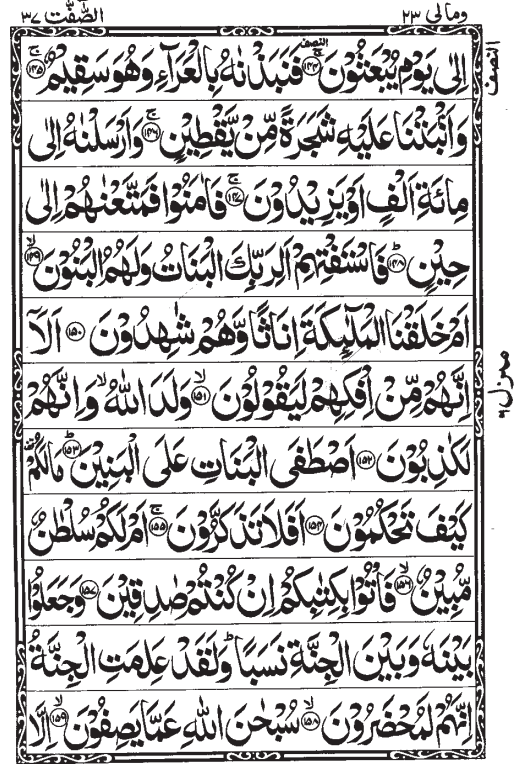 وما لی ۲۳
الصّٰفّٰت ۳۷
اِلٰى يَوْمِ يُبْعَثُوْنَ ۝۱۴۴ ج النصف فَنَبَذْنٰهُ بِالْعَرَآءِ وَهُوَ سَقِيْمٌ ۝۱۴۵ ج
وَاَنْۢبَتْنَا عَلَيْهِ شَجَرَةً مِّنْ يَّقْطِيْنٍ ۝۱۴۶ ج وَاَرْسَلْنٰهُ اِلٰى
مِائَةِ اَلْفٍ اَوْ يَزِيْدُوْنَ ۝۱۴۷ ج فَاٰمَنُوْا فَمَتَّعْنٰهُمْ اِلٰى
حِيْنٍ ۝۱۴۸ ط فَاسْتَفْتِهِمْ اَلِرَبِّكَ الْبَنَاتُ وَلَهُمُ الْبَنُوْنَ ۝۱۴۹ لا
اَمْ خَلَقْنَا الْمَلٰٓئِكَةَ اِنَاثًا وَّهُمْ شٰهِدُوْنَ ۝۱۵۰ اَلَآ
اِنَّهُمْ مِّنْ اِفْكِهِمْ لَيَقُوْلُوْنَ ۝۱۵۱ لا وَلَدَ اللّٰهُ ۙ وَاِنَّهُمْ
لَكٰذِبُوْنَ ۝۱۵۲ اَصْطَفَى الْبَنَاتِ عَلَى الْبَنِيْنَ ۝۱۵۳ ط مَا لَكُمْ
كَيْفَ تَحْكُمُوْنَ ۝۱۵۴ اَفَلَا تَذَكَّرُوْنَ ۝۱۵۵ ج اَمْ لَكُمْ سُلْطٰنٌ
مُّبِيْنٌ ۝۱۵۶ لا فَاْتُوْا بِكِتٰبِكُمْ اِنْ كُنْتُمْ صٰدِقِيْنَ ۝۱۵۷ وَجَعَلُوْا
بَيْنَهٗ وَبَيْنَ الْجِنَّةِ نَسَبًا ؕ وَلَقَدْ عَلِمَتِ الْجِنَّةُ
اِنَّهُمْ لَمُحْضَرُوْنَ ۝۱۵۸ لا سُبْحٰنَ اللّٰهِ عَمَّا يَصِفُوْنَ ۝۱۵۹ لا اِلَّا
النصف
منزل ۶